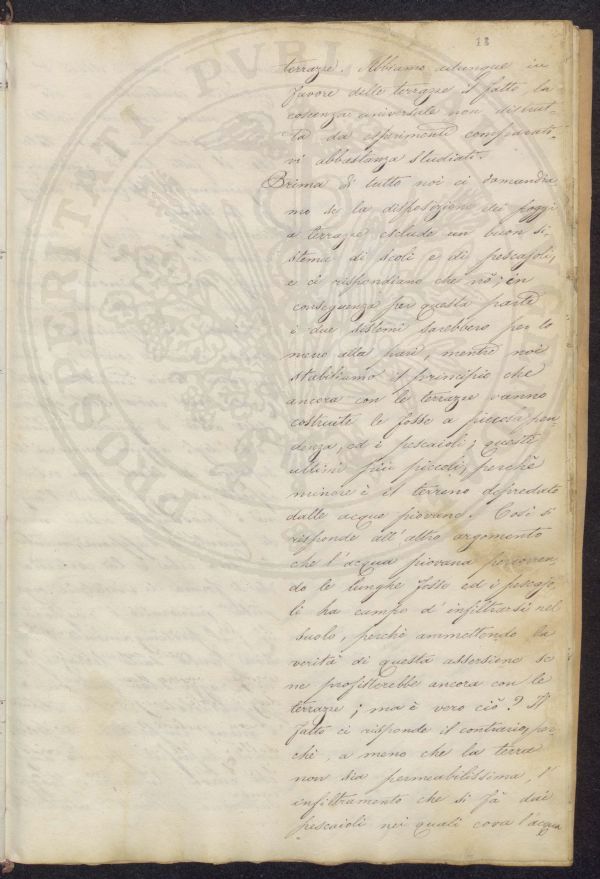 13
terrazze. Abbiamo adunque in
favore delle terrazze il fatto, la
coscenza universale non distrut-
ta da esperimenti comparati-
vi abbastanza studiati.
Prima di tutto noi ci domandia
mo se la disposizione dei poggi
a terrazze esclude un buon si-
stema di scoli e di pescajoli;
e ci rispondiamo che nò; in
conseguenza per questa parte
i due sistemi sarebbero per lo
meno alla pari, mentre noi
stabiliamo il principio che
ancora con le terrazze vanno
costruite le fosse a piccola pen-
denza, ed i pescaioli; questi
ultimi più piccoli, perchè
minore è il terreno depredato
dalle acque piovane. Così si
risponde all'altro argomento
che l'acqua piovana percorren-
do le lunghe fosse ed i pescajo
li ha campo d'infiltrarsi nel
suolo, perchè ammettendo la
verità di questa assersione se
ne profitterebbe ancora con le
terrazze; ma è vero ciò? Il
fatto ci risponde il contrario, per
chè, a meno che la terra
non sia permeabilissima, l'
infiltramento che si fà dai
pescaioli nei quali cova l'acqua
PROSPERITATI PVBL